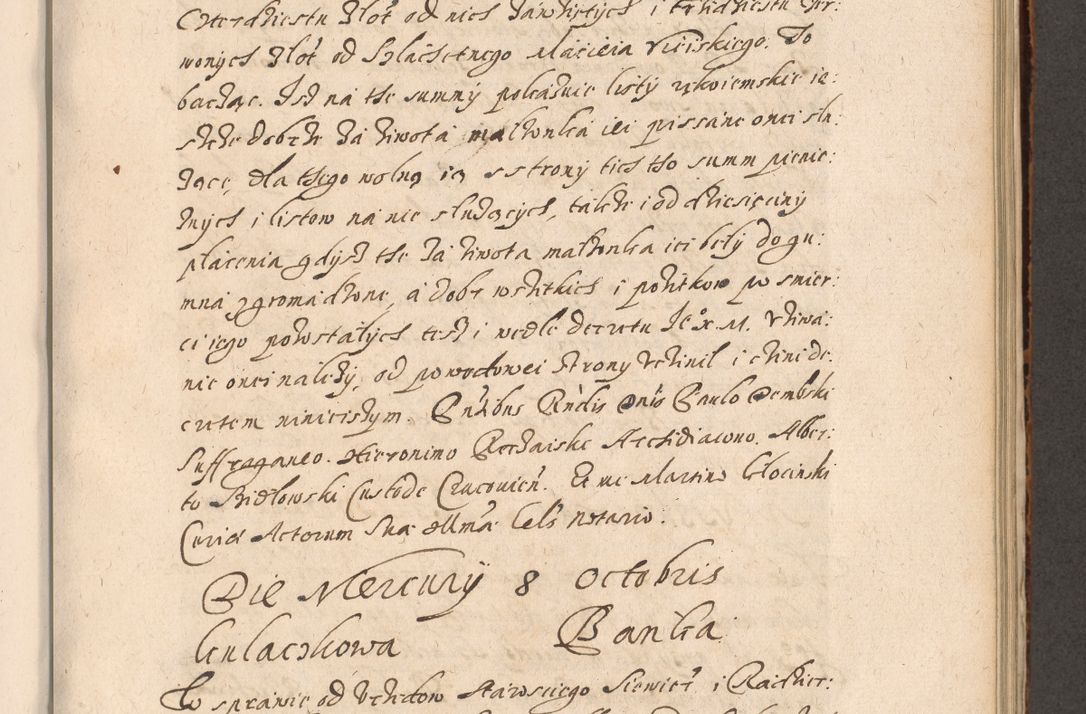 Czterdziestu Złot̃ od nich zawziętych i trzidziestu Cźr:
wonych Złot̃ od Szlachetnego Macieia Ruciskiego. To
bacząc. Isz na the summy pokazuie listy rękoiemskie ie:
stcze dobrze za żiwota małżonka iei pissane onei słu:
żące, dla thego wolną ią s strony tich tho summ pienię:
żnych i listow na nie służących, także i od dziesięciny
płacenia gdysz the za żiwota małżonka iei beły do gu:
mna zgromadzone, a dobr wszitkich i pożitkow po smier:
ci iego powstałych tesz i wedle decretu Je° X. M. vżiwa:
nie onei należy, od powodowei strony vczinił i czini de:
cretem ninieiszym. Pntibus Rndis Dnis Paulo Dembski
Suffraganeo. Hieronimo Rechaiske Archidiacono. Alber:
to Szidłowski Custode Cracovien̄. Et me Martino Głocinski
Curiæ Actorum Suæ Illmæ Cels Notario.
Die Mercury 8 Octobris
Kulaczkowa Banka
W sprawie od Vrzędow Starosciego Siewier̃ i Raczier: